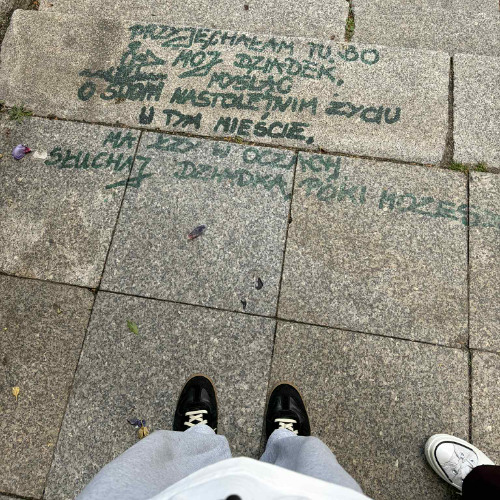 PRZYJECHAŁAM TU, BO
MÓJ DZIADEK,
MYŚLĄC
O SWOIM NASTOLETNIM ŻYCIU
W TYM MIEŚCIE,
MA ŁZY W OCZACH,
SŁUCHAJ DZIADKA PÓKI MOŻESZ